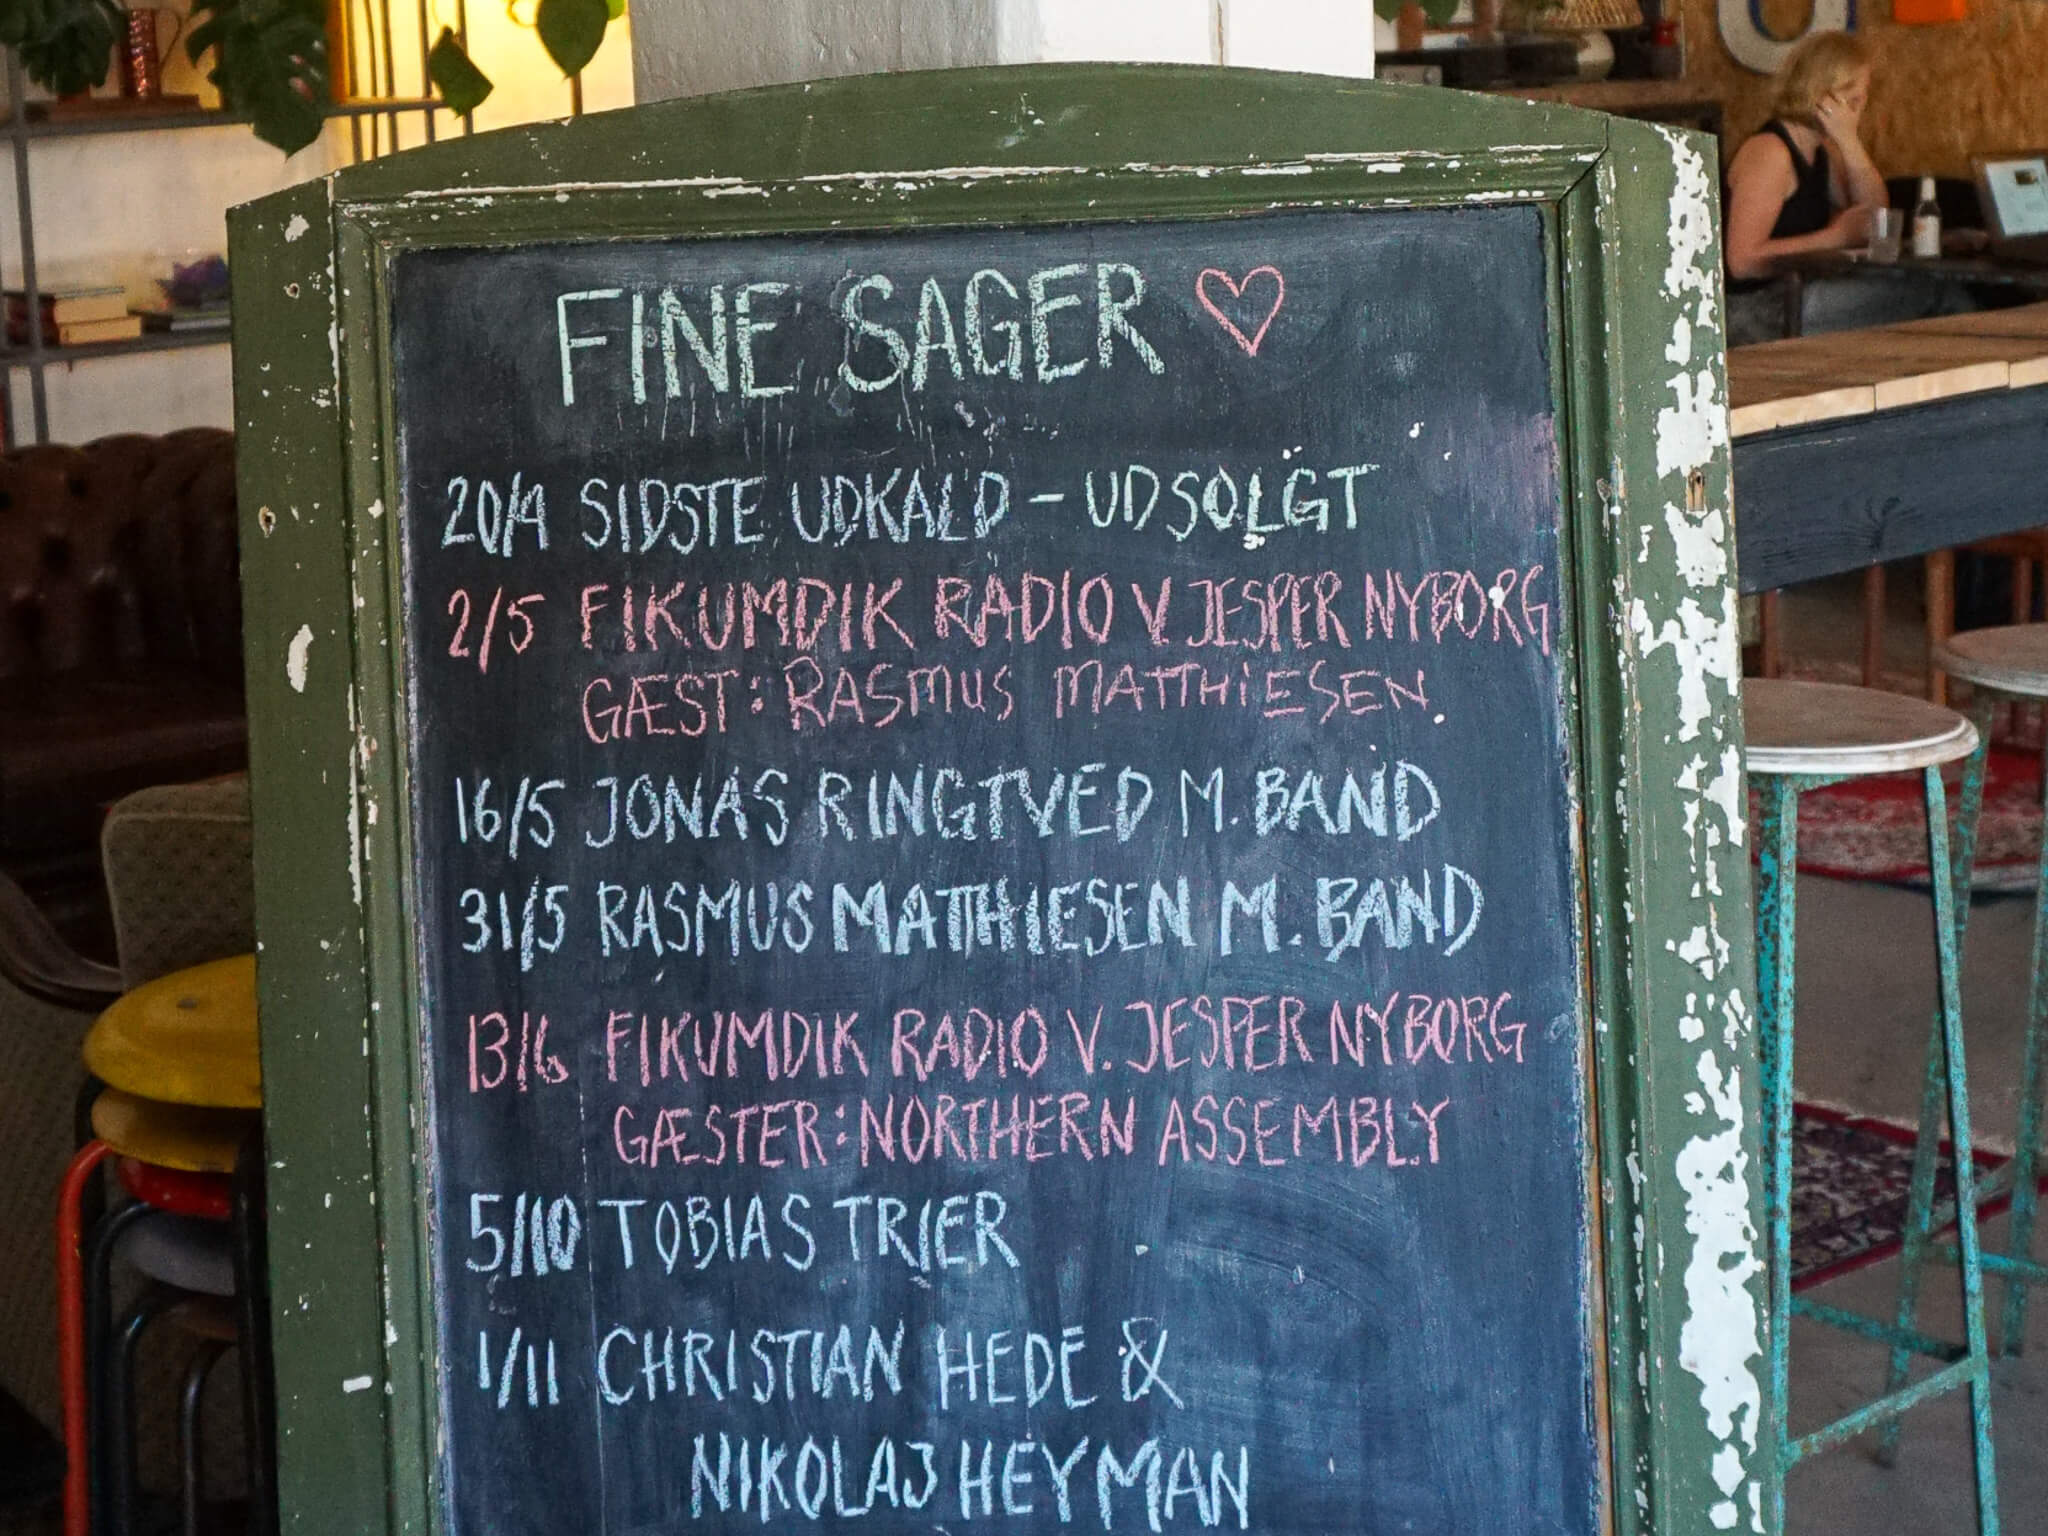 FINE SAGER
20/4 SIDSTE UDKALD - UDSOLGT
2/5 FIKUMDIK RADIO V JESPER NYBORG
GÆST: RASMUS MATTHIESEN
16/5 JONAS RINGTVED M. BAND
31/5 RASMUS MATTHIESEN M. BAND
13/6 FIKUMDIK RADIO V. JESPER NYBORG
GÆSTER: NORTHERN ASSEMBLY
5/10 TOBIAS TRIER
1/11 CHRISTIAN HEDE &
NIKOLAJ HEYMAN